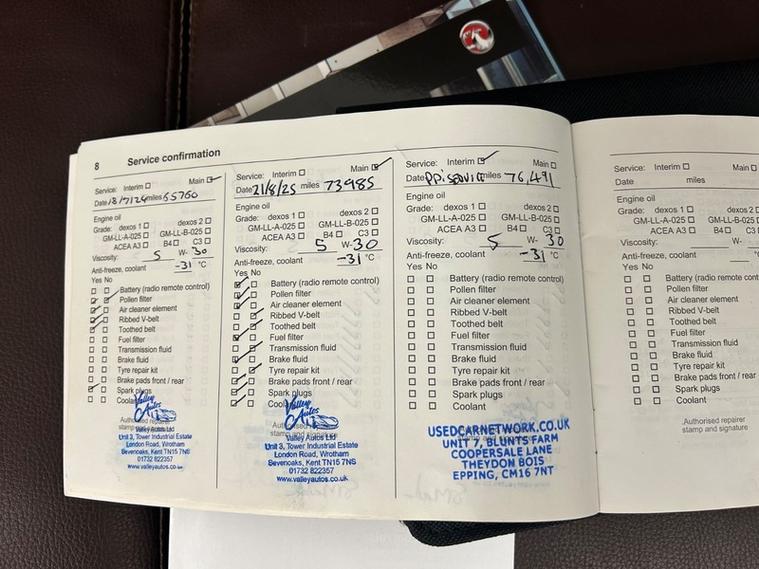 8 Service confirmation
Service: Interim ☐ Main ☐
Date 18/7/24 miles 65760
Engine oil
Grade: dexos 1 ☐ dexos 2 ☐
GM-LL-A-025 ☐ GM-LL-B-025 ☐
ACEA A3 ☐ B4 ☐ C3 ☐
Viscosity: 5 W- 30
Anti-freeze, coolant -31 °C
Yes No
Battery (radio remote control)
Pollen filter
Air cleaner element
Ribbed V-belt
Toothed belt
Fuel filter
Transmission fluid
Brake fluid
Tyre repair kit
Brake pads front / rear
Spark plugs
Coolant
Valley Autos
Authorised
stamp and signature
Valley Autos Ltd
Unit 3, Tower Industrial Estate
London Road, Wrotham
Sevenoaks, Kent TN15 7NS
01732 822357
www.valleyautos.co.uk
Service: Interim ☐ Main ☐
Date 21/8/25 miles 73985
Engine oil
Grade: dexos 1 ☐ dexos 2 ☐
GM-LL-A-025 ☐ GM-LL-B-025 ☐
ACEA A3 ☐ B4 ☐ C3 ☐
Viscosity: 5 W-30
Anti-freeze, coolant -31 °C
Yes No
Battery (radio remote control)
Pollen filter
Air cleaner element
Ribbed V-belt
Toothed belt
Fuel filter
Transmission fluid
Brake fluid
Tyre repair kit
Brake pads front / rear
Spark plugs
Coolant
Valley Autos
stamp and signature
Valley Autos Ltd
Unit 3, Tower Industrial Estate
London Road, Wrotham
Sevenoaks, Kent TN15 7NS
01732 822357
www.valleyautos.co.uk
Service: Interim ☐ Main ☐
Date PPi SERVICE miles 76,491
Engine oil
Grade: dexos 1 ☐ dexos 2 ☐
GM-LL-A-025 ☐ GM-LL-B-025 ☐
ACEA A3 ☐ B4 ☐ C3 ☐
Viscosity: 5 W- 30
Anti-freeze, coolant -31 °C
Yes No
Battery (radio remote control)
Pollen filter
Air cleaner element
Ribbed V-belt
Toothed belt
Fuel filter
Transmission fluid
Brake fluid
Tyre repair kit
Brake pads front / rear
Spark plugs
Coolant
USEDCARNETWORK.CO.UK
UNIT 7, BLUNTS FARM
COOPERSALE LANE
THEYDON BOIS
EPPING, CM16 7NT
Service: Interim ☐ Main
Date miles
Engine oil
Grade: dexos 1 ☐ dexos 2 ☐
GM-LL-A-025 ☐ GM-LL-B-025
ACEA A3 ☐ B4 ☐ C3 ☐
Viscosity: W-
Anti-freeze, coolant °C
Yes No
Battery (radio remote
Pollen filter
Air cleaner element
Ribbed V-belt
Toothed belt
Fuel filter
Transmission fluid
Brake fluid
Tyre repair kit
Brake pads front / rear
Spark plugs
Coolant
Authorised repairer
stamp and signature